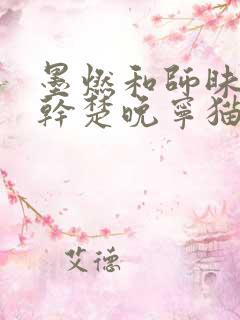 墨燃和師昧
幹楚晚寧猫
艾德